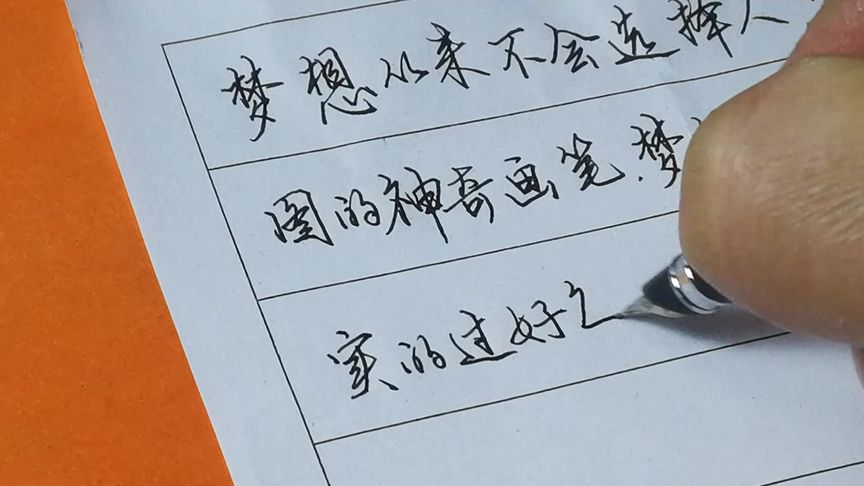 梦想从来不会选择人
图的神奇画笔.梦
实的过好